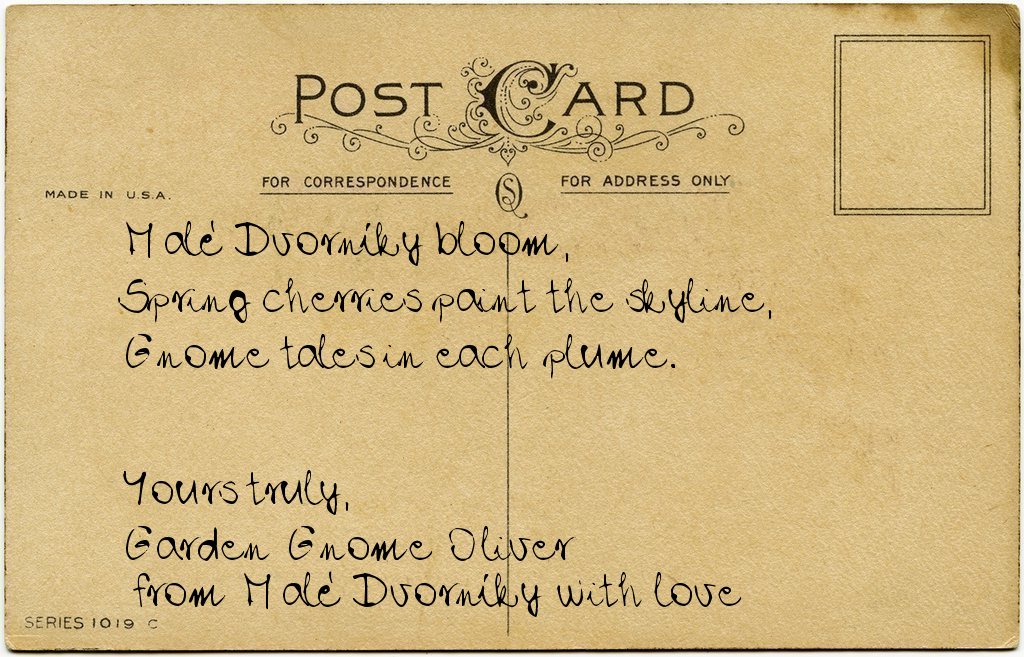 POST CARD
FOR CORRESPONDENCE
FOR ADDRESS ONLY
MADE IN U.S.A.
Malé Dvorníky bloom,
Spring cherries paint the skyline,
Gnome tales in each plume.
Yours truly,
Garden Gnome Oliver
from Malé Dvorníky with love
SERIES 1019 C